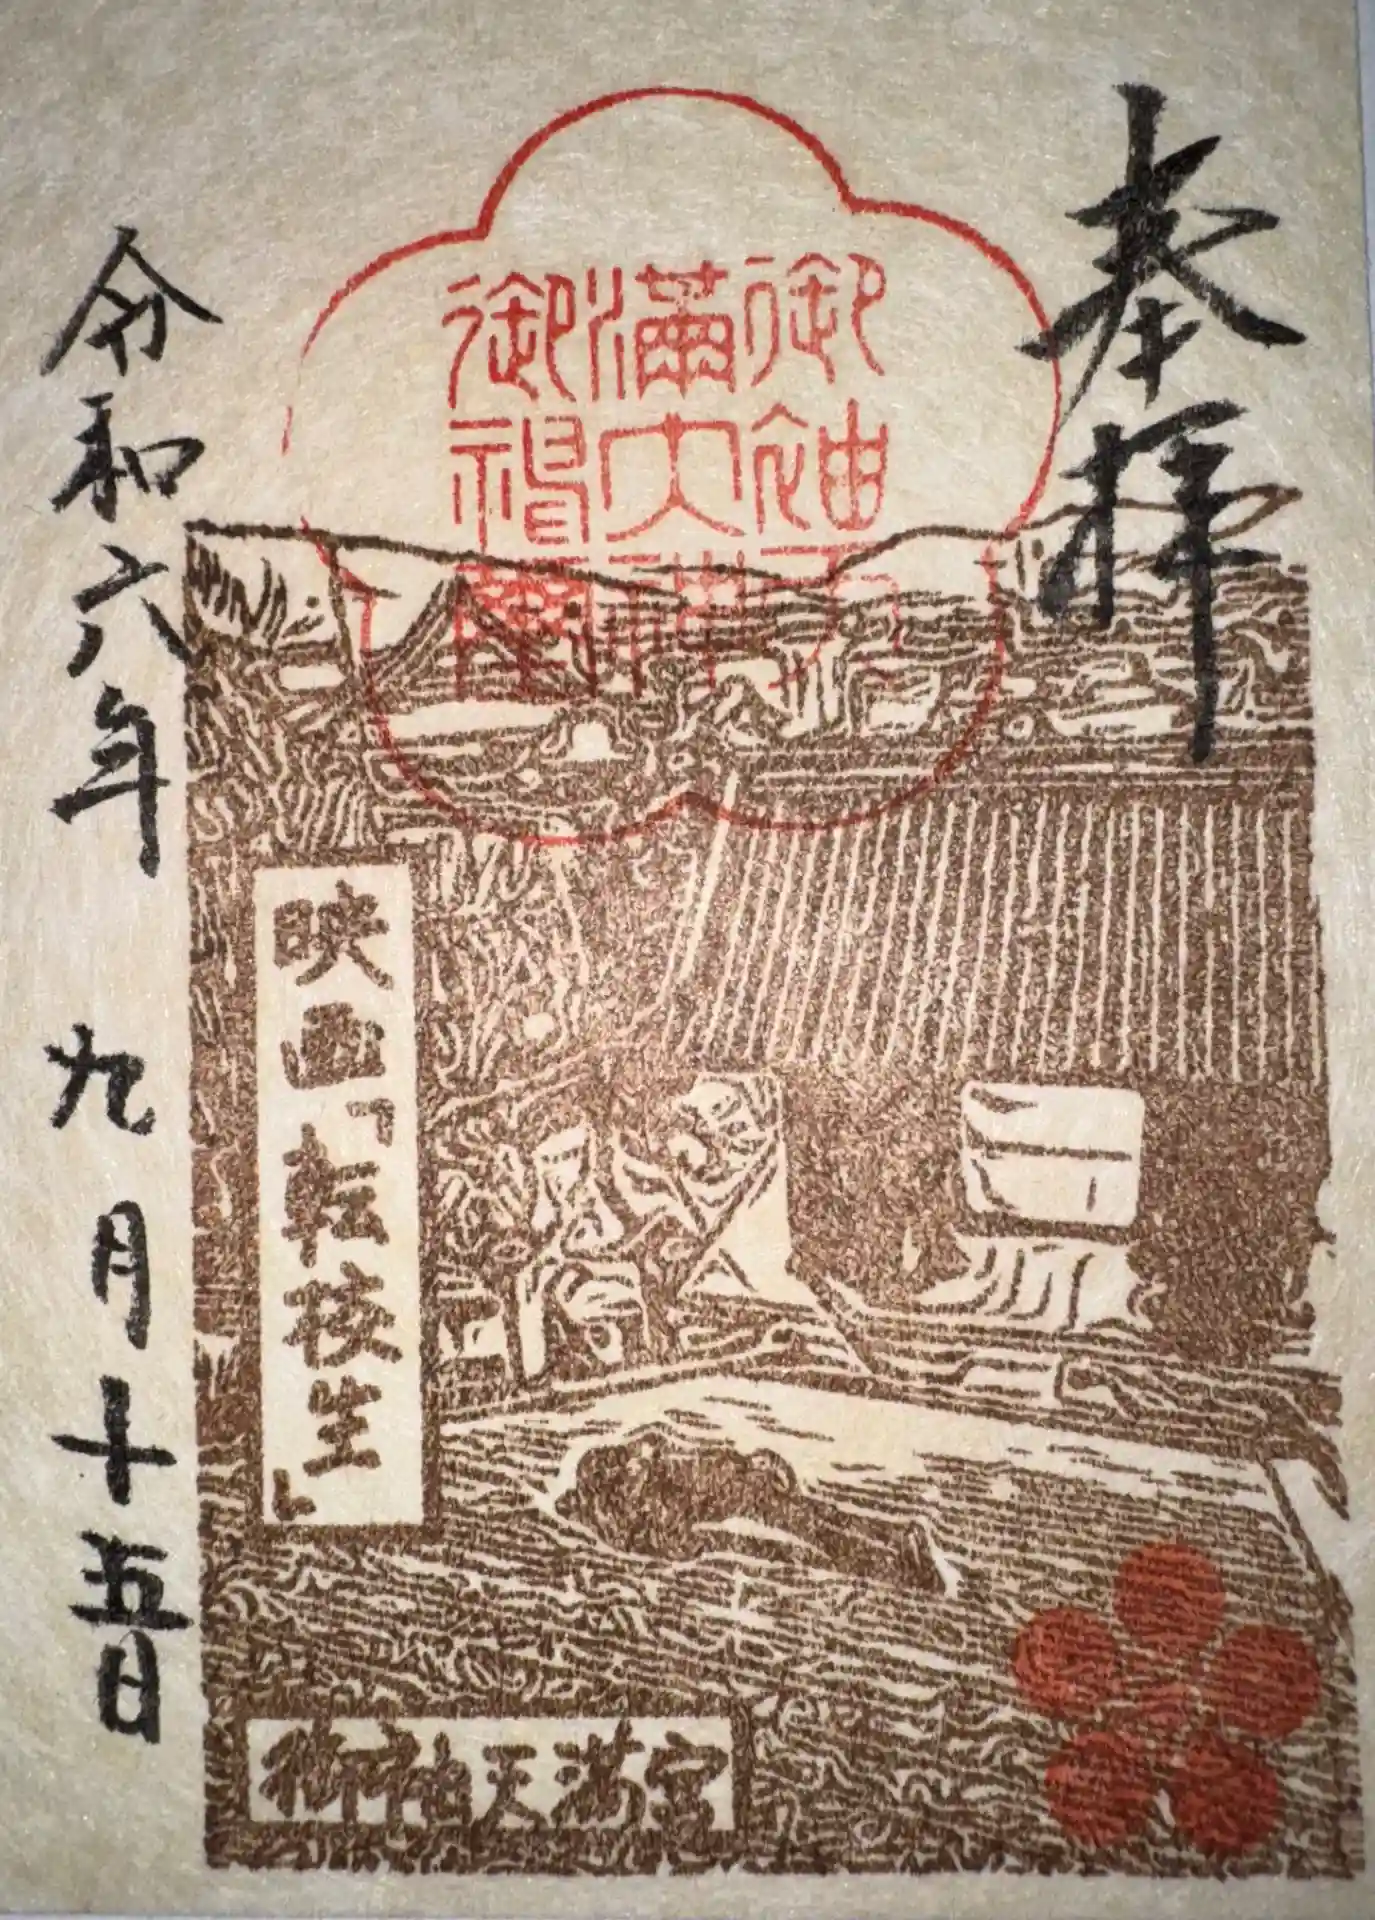 奉拝
御袖天
満大神
御
映画「転校生」
御袖天満宮
令和六年 九月十五日